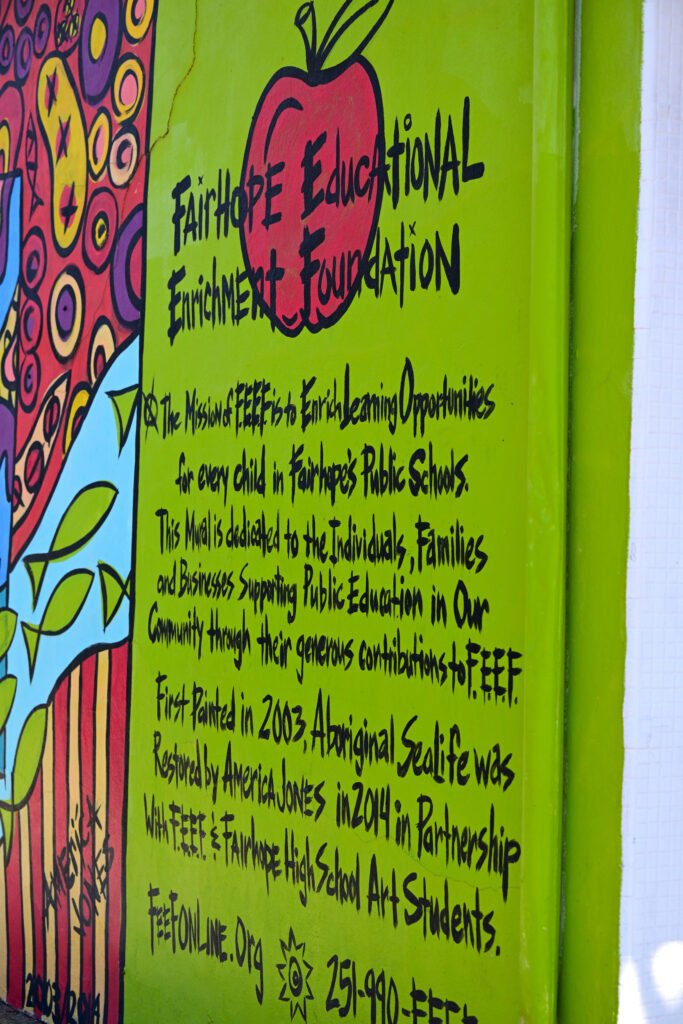 FairHOPE Educational
Enrichment Foundation
The Mission of F.E.E.F. is to Enrich Learning Opportunities
for every child in Fairhope's Public Schools.
This Mural is dedicated to the Individuals, Families
and Businesses Supporting Public Education in Our
Community through their generous contributions to F.E.E.F.
First Painted in 2003, Aboriginal SeaLife was
Restored by America JONES in 2014 in Partnership
With F.E.E.F. & Fairhope High School Art Students.
FEEFONLINE.Org
251-990-FEEF
AMERICA
JONES
2003/2014